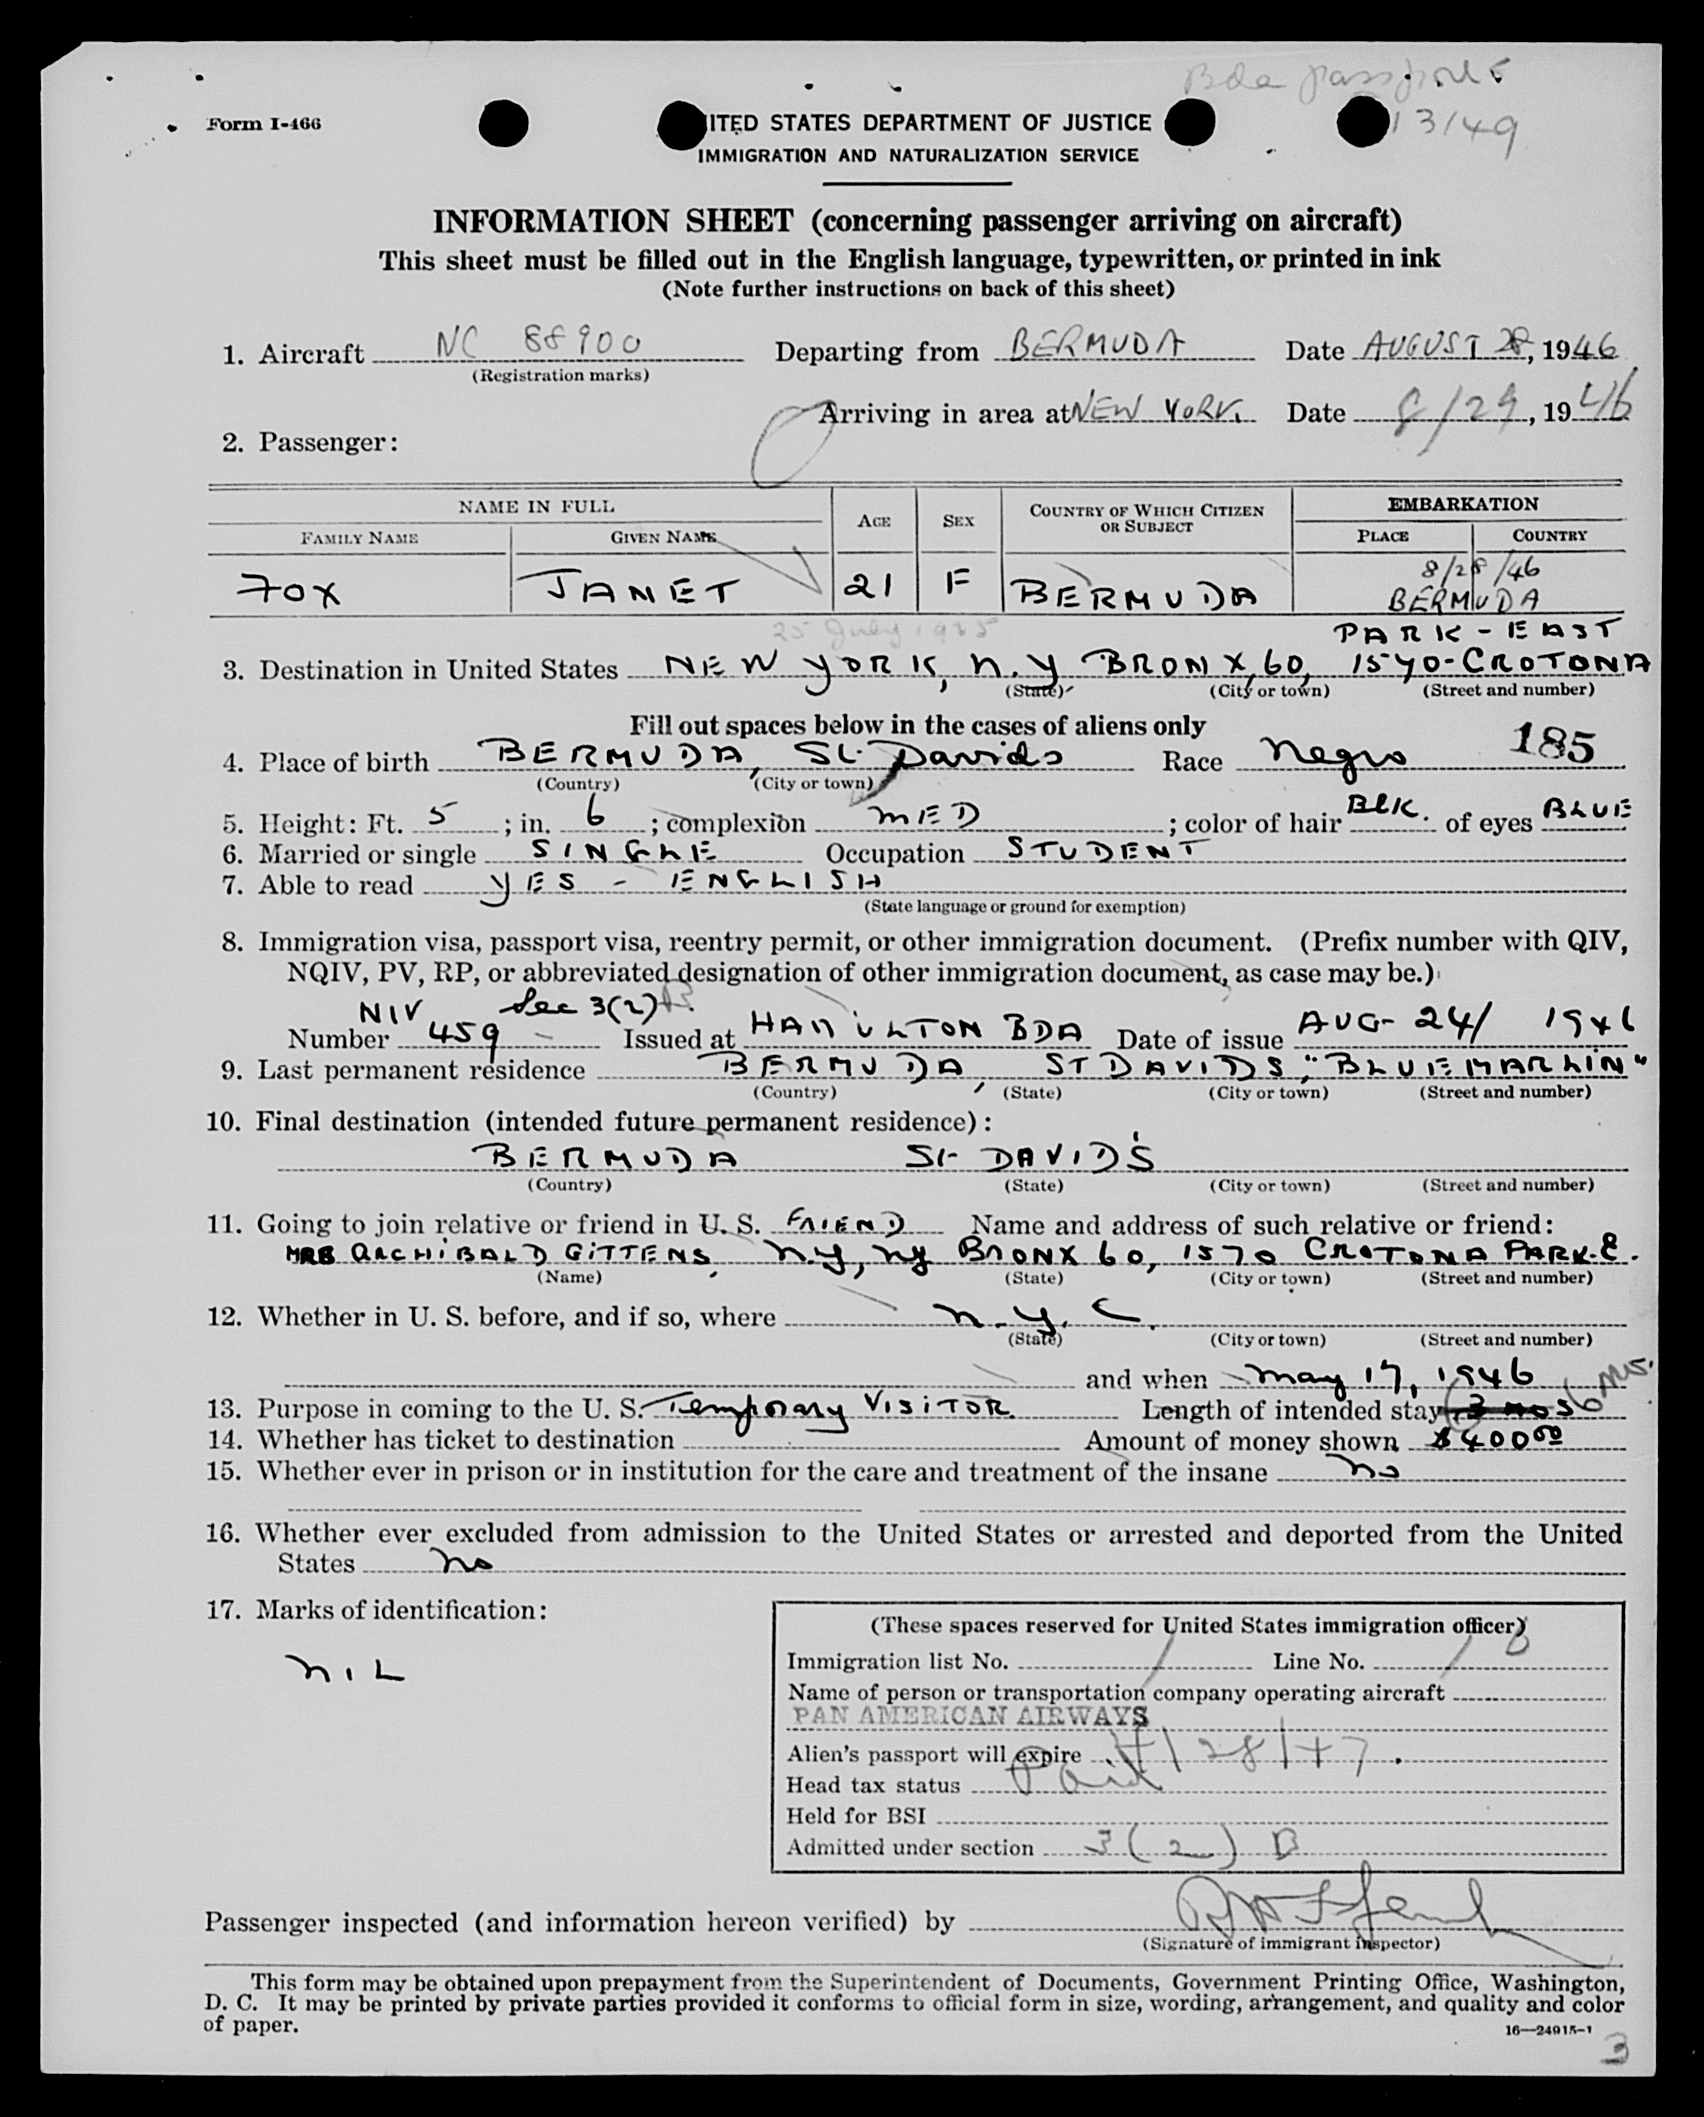 Bda passport
13149
Form I-466
ITED STATES DEPARTMENT OF JUSTICE
IMMIGRATION AND NATURALIZATION SERVICE
INFORMATION SHEET (concerning passenger arriving on aircraft)
This sheet must be filled out in the English language, typewritten, or printed in ink
(Note further instructions on back of this sheet)
1. Aircraft NC 88900 Departing from BERMUDA Date AUGUST 28, 1946
(Registration marks)
Arriving in area at NEW YORK. Date 8/29, 1946
2. Passenger:
NAME IN FULL AGE SEX COUNTRY OF WHICH CITIZEN OR SUBJECT EMBARKATION
FAMILY NAME GIVEN NAME PLACE COUNTRY
8/28/46
FOX JANET 21 F BERMUDA BERMUDA
25 July 1925 PARK-EAST
3. Destination in United States NEW YORK, N.Y BRONX, 60, 1570-CROTONA
(State) (City or town) (Street and number)
Fill out spaces below in the cases of aliens only
4. Place of birth BERMUDA, St. Davids Race Negro 185
(Country) (City or town)
5. Height: Ft. 5; in. 6; complexion MED; color of hair BLK. of eyes BLUE
6. Married or single SINGLE Occupation STUDENT
7. Able to read YES - ENGLISH
(State language or ground for exemption)
8. Immigration visa, passport visa, reentry permit, or other immigration document. (Prefix number with QIV,
NQIV, PV, RP, or abbreviated designation of other immigration document, as case may be.)
NIV Sec 3(2) B
Number 459 - Issued at HAMILTON BDA Date of issue AUG- 24/ 1946
9. Last permanent residence BERMUDA, ST DAVIDS, "BLUE MARLIN"
(Country) (State) (City or town) (Street and number)
10. Final destination (intended future permanent residence):
BERMUDA St- DAVID'S
(Country) (State) (City or town) (Street and number)
11. Going to join relative or friend in U. S. FRIEND Name and address of such relative or friend:
MRS ARCHIBALD GITTENS, N.Y, NY BRONX 60, 1570 CROTONA PARK.E.
(Name) (State) (City or town) (Street and number)
12. Whether in U. S. before, and if so, where N.Y.C.
(State) (City or town) (Street and number)
and when May 17, 1946
13. Purpose in coming to the U. S. Temporary VISITOR. Length of intended stay 3 mos 6 ms.
14. Whether has ticket to destination Amount of money shown $400 00
15. Whether ever in prison or in institution for the care and treatment of the insane no
16. Whether ever excluded from admission to the United States or arrested and deported from the United
States no
17. Marks of identification:
NIL
(These spaces reserved for United States immigration officer)
Immigration list No. 1 Line No. 1 B
Name of person or transportation company operating aircraft
PAN AMERICAN AIRWAYS
Alien's passport will expire 4/28/47.
Head tax status Paid
Held for BSI
Admitted under section 3 (2) B
Passenger inspected (and information hereon verified) by
(Signature of immigrant inspector)
This form may be obtained upon prepayment from the Superintendent of Documents, Government Printing Office, Washington,
D. C. It may be printed by private parties provided it conforms to official form in size, wording, arrangement, and quality and color
of paper.
16—24915-1
3